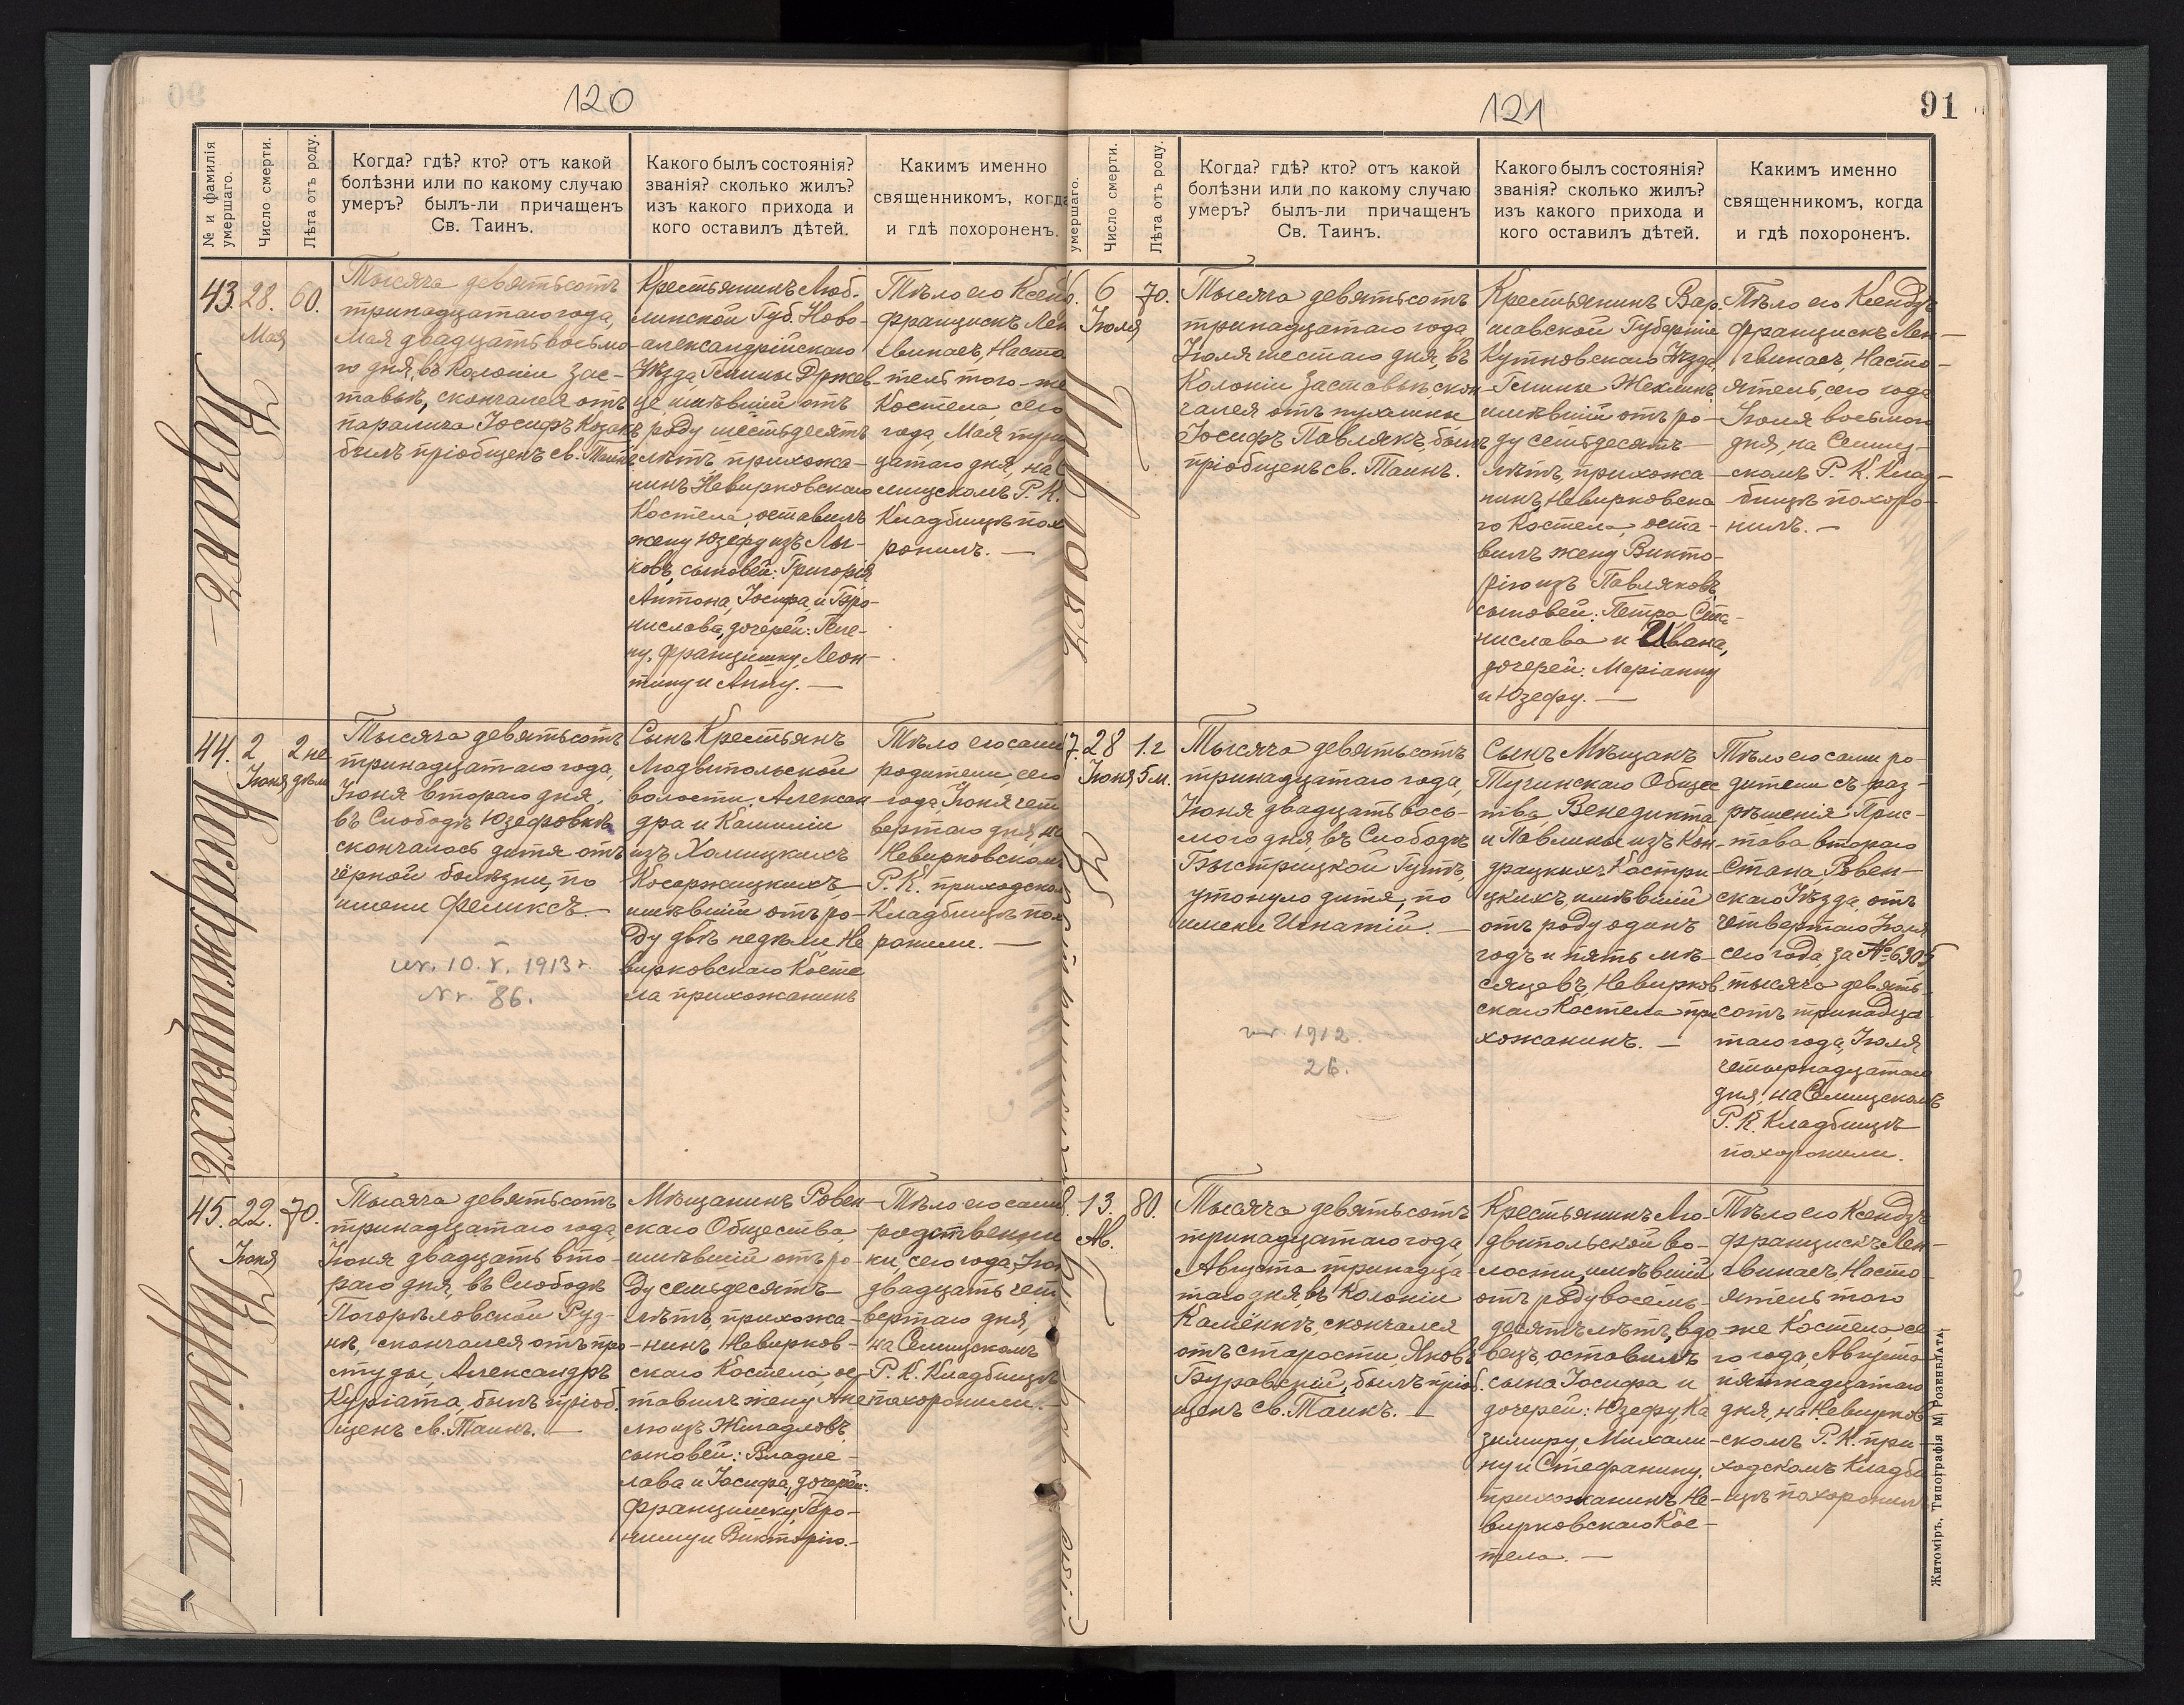 120
№ и фамилія умершаго.
Число смерти.
Лѣта отъ роду.
Когда? гдѣ? кто? отъ какой
болѣзни или по какому случаю
умеръ? былъ-ли причащенъ
Св. Таинъ.
Какого былъ состоянія?
званія? сколько жилъ?
изъ какого прихода и
кого оставилъ дѣтей.
Какимъ именно
священникомъ, когда
и гдѣ похороненъ.
43.
Козакъ
28.
Мая
60.
Тысяча девятьсотъ
тринадцатаго года,
Мая двадцать восьма-
го дня, въ Колоніи Зас-
тавьѣ, скончался отъ
паралича Іосифъ Козакъ
былъ пріобщенъ св. Таинъ.
Крестьянинъ Люб-
линской Губ. Ново-
александрійскаго
Уѣзда, Гмины Држев-
це имѣвшій отъ
роду шестьдесятъ
лѣтъ, прихожа-
нинъ Невирковскаго
Костела, оставилъ
жену Юзефу изъ Лы-
ковъ, сыновей: Григорія,
Антона, Іосифа, и Бро-
нислава, дочерей: Геле-
ну, Францишку, Леон-
тину и Анну. —
Тѣло его Ксендз
Францискъ Лен
гвинасъ, Насто
тель того-же
Костела, сего
года, Мая трид
цатаго дня, на С
лищскомъ Р. К.
Кладбищѣ пох
ронилъ. —
44.
Косаржицкихъ
2
Іюня
2 не
дѣли
Тысяча девятьсотъ
тринадцатаго года,
Іюня втораго дня,
въ Слободѣ Юзефовкѣ
скончалось дитя отъ
чёрной болѣзни, по
имени Феликсъ. —
ur. 10. V. 1913 r.
Nr. 86.
Сынъ Крестьянъ
Людвипольской
волости, Алексан
дра и Камиліи
изъ Холицкихъ
Косаржицкихъ
имѣвшій отъ ро-
ду двѣ недѣли Не
вирковскаго Косте
ла прихожанинъ
Тѣло его сами
родители, сего
года Іюня чет
вертаго дня, на
Невирковском
Р. К. приходско
Кладбищѣ пох
ронили. —
45.
Куріата
22.
Іюня
70.
Тысяча девятьсотъ
тринадцатаго года,
Іюня двадцать вто-
раго дня, въ Слободѣ
Погорѣловской Руд-
нѣ, скончался отъ про
студы, Александръ
Куріата, былъ пріоб-
щенъ св. Таинъ. —
Мѣщанинъ Ровен
скаго Общества,
имѣвшій отъ ро-
ду семьдесятъ
лѣтъ, прихожа-
нинъ Невирков-
скаго Костела, ос
тавилъ жену Ане
лю изъ Жигадловъ,
сыновей: Владис-
лава и Іосифа, дочерей:
Францишку, Бро-
ниму и Викторію. —
Тѣло его сами
родственни
ки, сего года, Іюн
двадцать чет
вертаго дня,
на Селищскомъ
Р. К. Кладбищѣ
похоронили. —
121
91
умершаго.
Число смерти.
Лѣта отъ роду.
Когда? гдѣ? кто? отъ какой
болѣзни или по какому случаю
умеръ? былъ-ли причащенъ
Св. Таинъ.
Какого былъ состоянія?
званія? сколько жилъ?
изъ какого прихода и
кого оставилъ дѣтей.
Какимъ именно
священникомъ, когда
и гдѣ похороненъ.
6
Іюля
70.
Тысяча девятьсотъ
тринадцатаго года
Іюля шестаго дня, въ
Колоніи Заставьѣ, скон
чался отъ пухлины
Іосифъ Павлякъ, былъ
пріобщенъ св. Таинъ.
Крестьянинъ Вар-
шавской Губерніи
Кутновскаго Уѣзда,
Гмины Жехлинъ,
имѣвшій отъ ро-
ду семьдесятъ
лѣтъ, прихожа
нинъ, Невирковска
го Костела, оста-
вилъ жену Викто-
рію изъ Павляковъ,
сыновей: Петра, Ста-
нислава и Ивана,
дочерей: Маріанну
и Юзефу. —
Тѣло его Ксендзъ
Францискъ Лен-
гвинасъ, Насто-
ятель, сего года
Іюля восьмого
дня, на Селищ-
скомъ Р. К. Клад-
бищѣ похоро-
нилъ. —
7.
28
Іюня
1.г
5м.
Тысяча девятьсотъ
тринадцатаго года,
Іюня двадцать вось-
мого дня, въ Слободѣ
Быстрицкой Гутѣ,
утонуло дитя, по
имени Игнатій. —
ur. 1912.
26.
Сынъ Мѣщанъ
Тучинскаго Общес
тва, Венедикта
и Павлины изъ Кон-
драцкихъ Костри-
цкихъ, имѣвшій
отъ роду одинъ
годъ и пять мѣ-
сяцевъ, Невирков-
скаго Костела при
хожанинъ. —
Тѣло его сами ро-
дители съ раз-
рѣшенія Прис-
тава втораго
Стана Ровен-
скаго Уѣзда, отъ
четвертаго Іюля
сего года, за № 6305
тысяча девять-
сотъ тринадца
таго года, Іюля
четырнадцатаго
дня, на Селищскомъ
Р. К. Кладбищѣ
похоронили.
8.
13.
Ав.
80.
Тысяча девятьсотъ
тринадцатаго года,
Августа тринадца-
таго дня, въ Колоніи
Камёнкѣ, скончался
отъ старости, Яковъ
Буравскій, былъ пріоб-
щенъ св. Таинъ. —
Крестьянинъ Лю-
двипольской во-
лости, имѣвшій
отъ роду восемь-
десятъ лѣтъ, вдо-
вецъ, оставилъ
сына Іосифа и
дочерей: Юзефу, Ка
зимиру, Михали-
ну и Стефанину,
прихожанинъ Не-
вирковскаго Кос-
тела. —
Тѣло его Ксендзъ
Францискъ Лен-
гвинасъ, Насто-
ятель того
же Костела, се
го года, Августа
пятнадцатаго
дня, на Невирков-
скомъ Р. К. при-
ходскомъ Кладби
щѣ похоронилъ
Житоміръ, Типографія М. Розенблата.